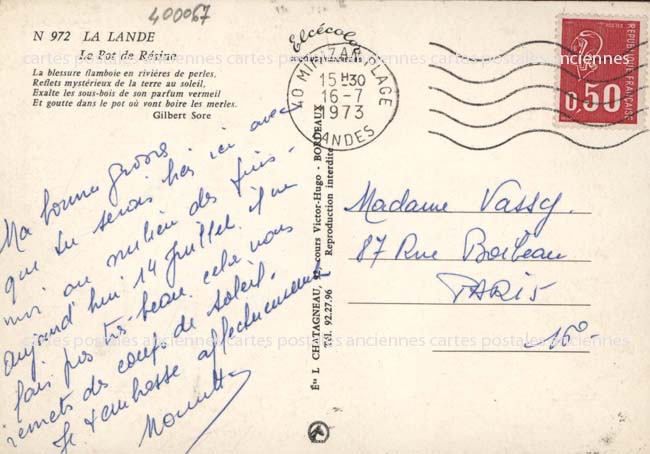 400067
N 972 LA LANDE
Le Pot de Résine
La blessure flamboie en rivières de perles,
Reflets mystérieux de la terre au soleil,
Exalte les sous-bois de son parfum vermeil
Et goutte dans le pot où vont boire les merles.
Gilbert Sore
Elcécolor
40 MIMIZAN PLAGE
15 H 30
16-7
1973
LANDES
0,50
REPUBLIQUE FRANÇAISE
cartes postales anciennes cartes postales anciennes cartes postales anciennes
Ma bonne
que tu serais bien ici avec
moi au milieu des pins.
aujourd'hui 14 Juillet il ne
fait pas très beau cela nous
remets des coups de soleil.
Je t'embrasse affectueusement
Ets L. CHATAGNEAU, cours Victor-Hugo - BORDEAUX
Tél. 92.27.96
Reproduction interdite
Madame Vassy.
87 Rue Boileau
PARIS
16°-
cartes postales anciennes cartes postales anciennes cartes postales anciennes